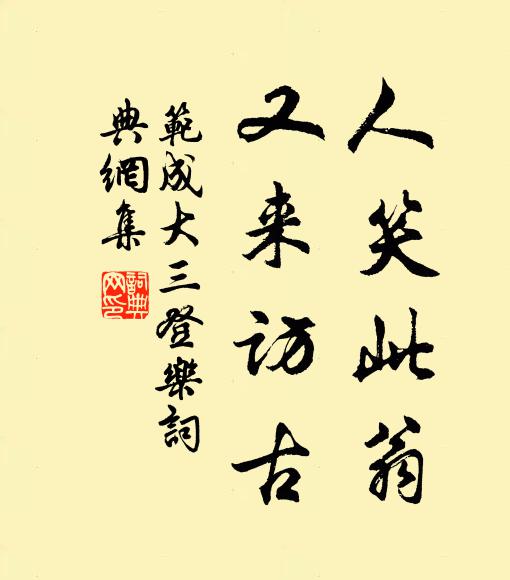 人笑此翁
又来访古
範成大三登樂詞
典網集
詞典網印